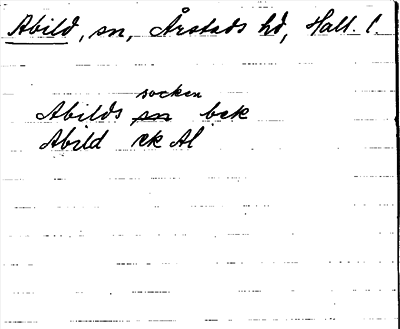 Abild, sn, Årstads hd, Hall. l.
socken
Abilds sn bek
Abild ek Al